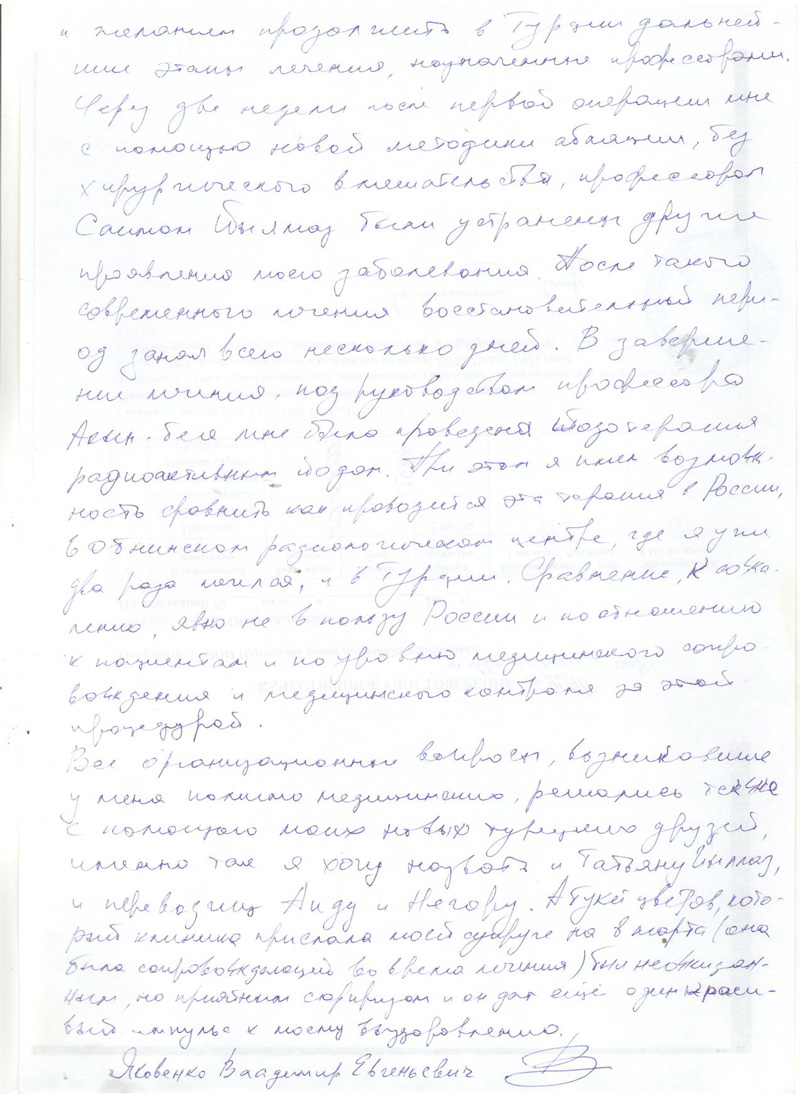 и желанием продолжить в Турции дальней-
шие этапы лечения, назначенные профессорами.
Через две недели после первой операции мне
с помощью новой методики абляции, без
хирургического вмешательства, профессором
Саимом Йылмаз были устранены другие
проявления моего заболевания. После такого
современного лечения восстановительный пери-
од занял всего несколько дней. В заверше-
нии лечения, под руководством профессора
Акын-бея мне была проведена йодотерапия
радиоактивным йодом. При этом я имел возмож-
ность сравнить как проводится эта терапия в России,
в Обнинском радиологическом центре, где я уже
два раза лечился, и в Турции. Сравнение, к сожа-
лению, явно не в пользу России и по отношению
к пациентам и по уровню медицинского сопро-
вождения и медицинского контроля за этой
процедурой.
Все организационные вопросы, возникавшие
у меня помимо медицинских, решались также
с помощью моих новых турецких друзей,
именно так я хочу назвать и Татьяну Йылмаз,
и переводчиц Аиду и Негору. А букет цветов, кото-
рый клиника прислала моей супруге на 8 марта (она
была сопровождающей во время лечения) был неожидан-
ным, но приятным сюрпризом и он дал ещё один краси-
вый импульс к моему выздоровлению.
Яковенко Владимир Евгеньевич